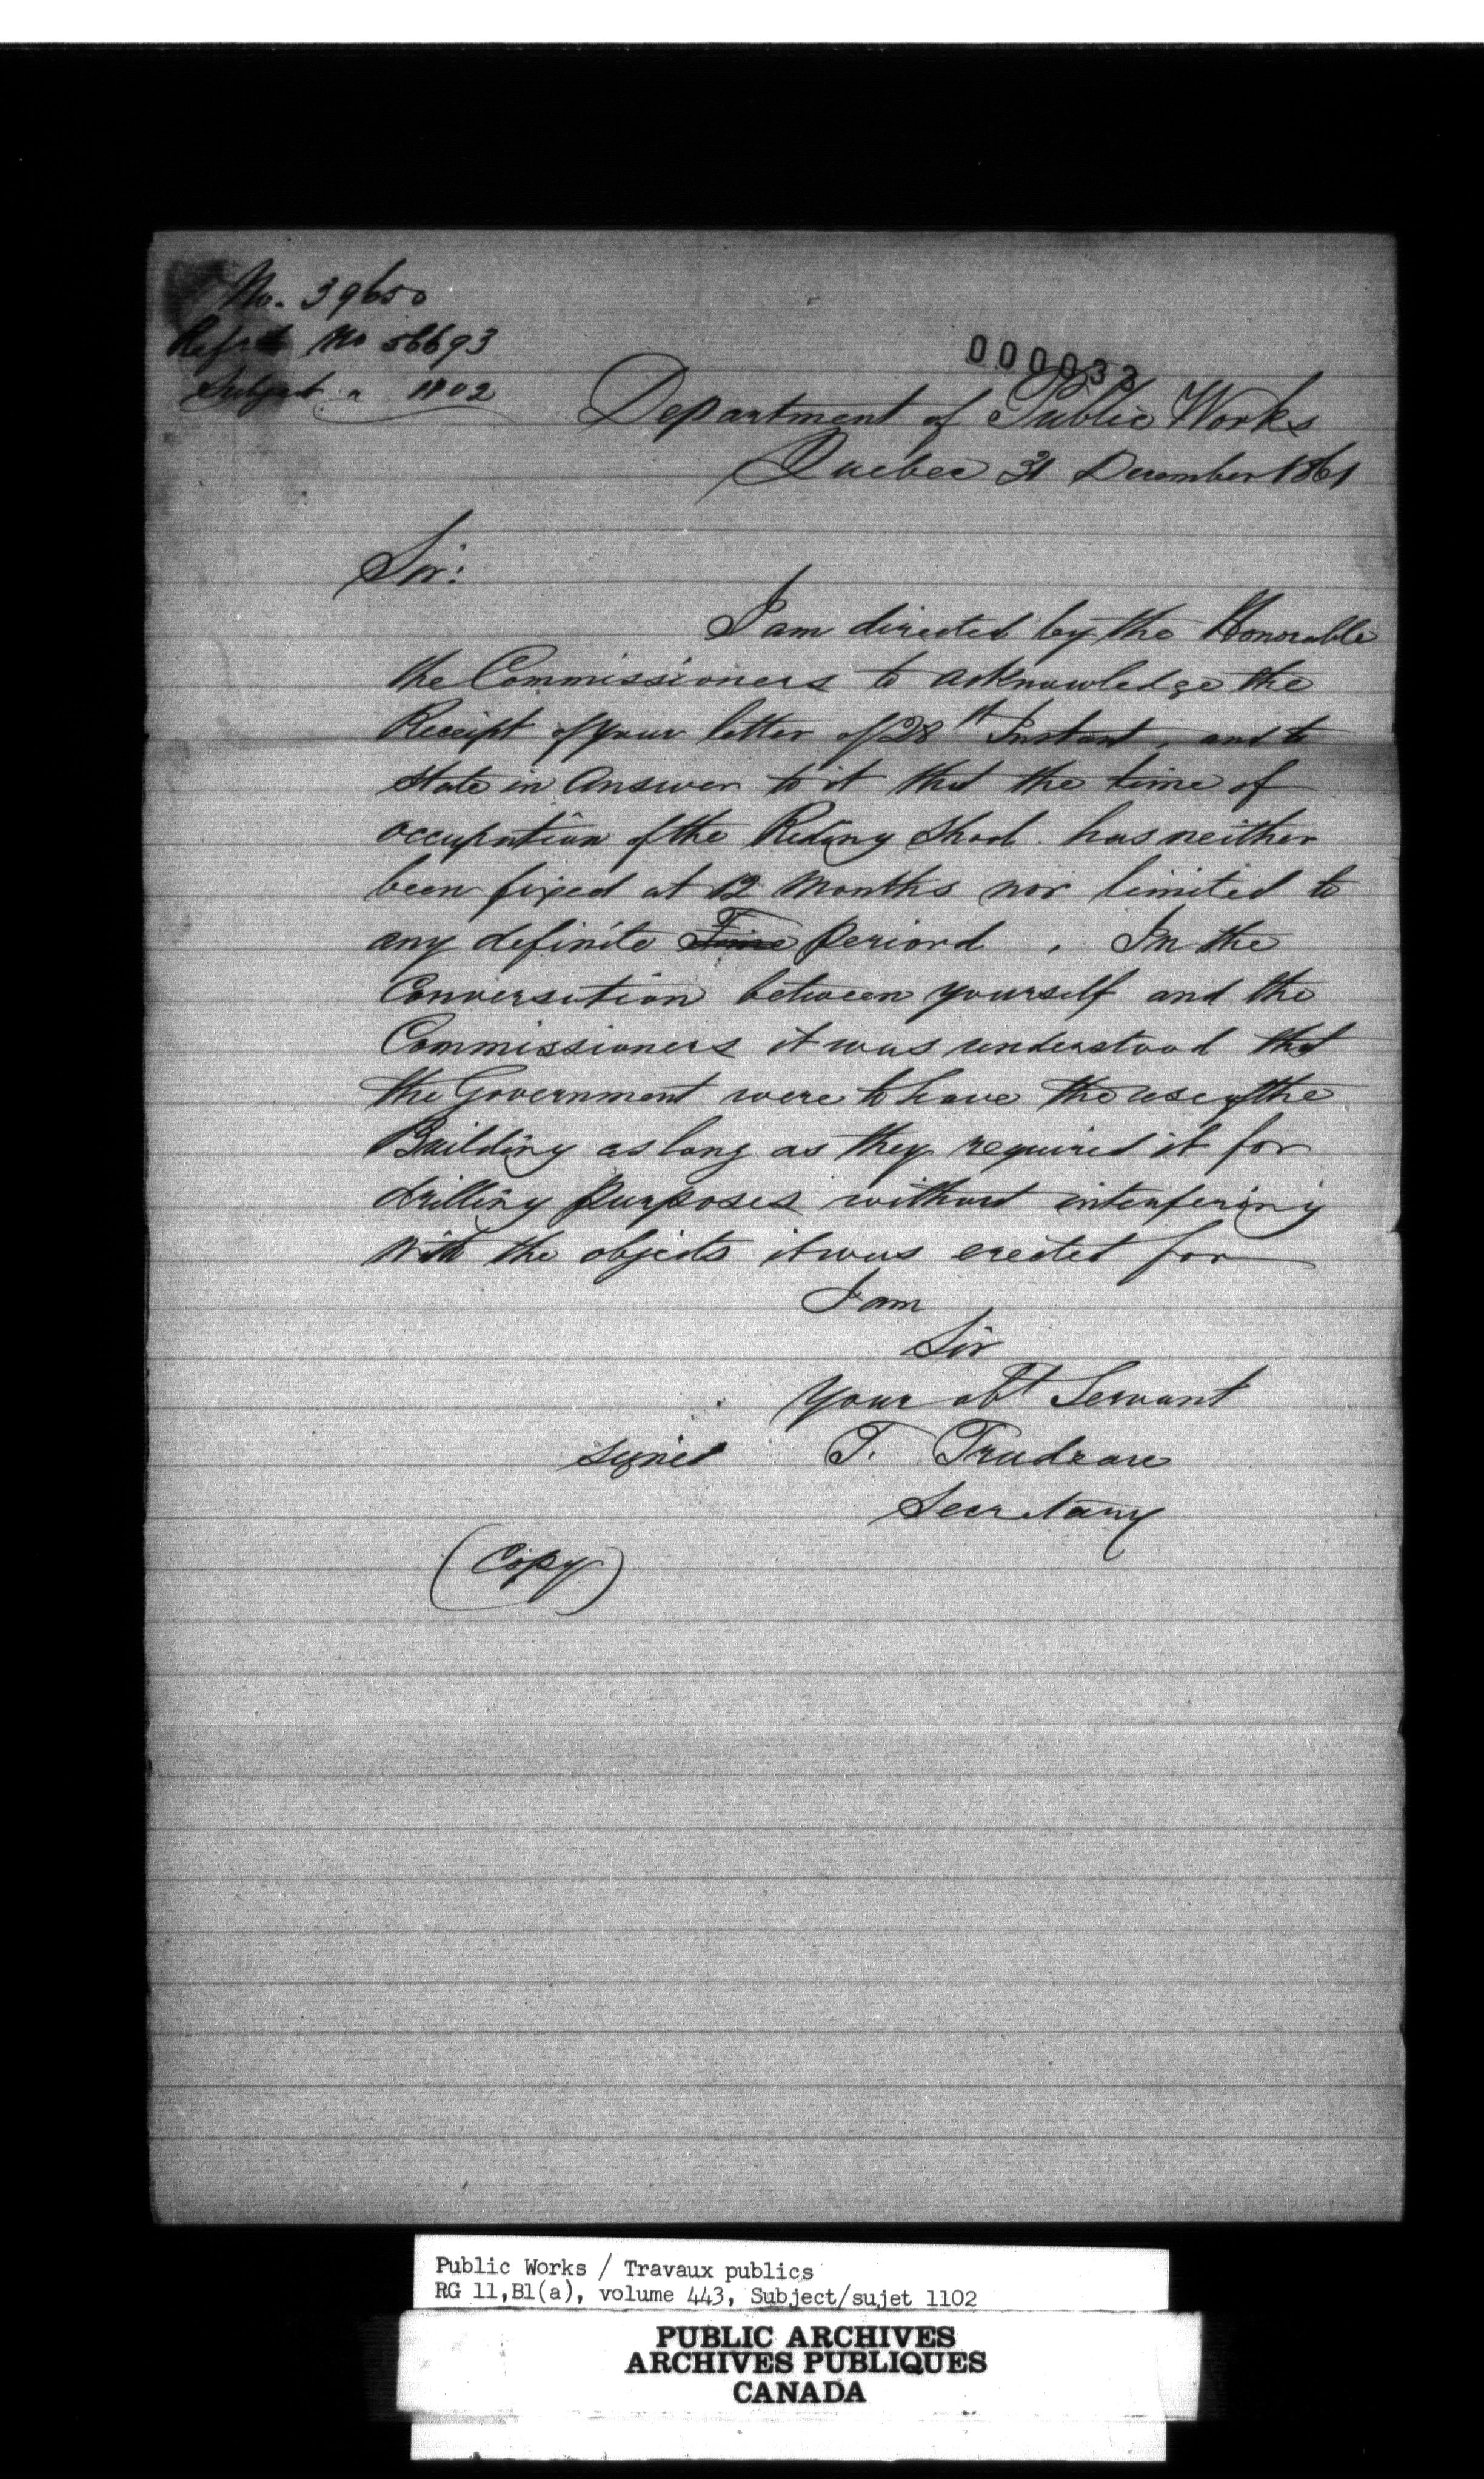 No. 39650
Refce No 56693
Subject " 1102
000033
Department of Public Works
Quebec 31 December 1861
Sir:
I am directed by the Honorable
the Commissioners to acknowledge the
Receipt of your letter of 28th Instant, and to
state in answer to it that the time of
occupation of the Riding Shool has neither
been fixed at 12 Months nor limited to
any definite Time period . In the
Conversation between yourself and the
Commissioners it was understood that
the Government were to have the use of the
Building as long as they required it for
drilling purposes without interfering
with the objects it was erected for
I am
Sir
Your obt Servant
signed T. Trudeau
Secretary
(Copy)
Public Works / Travaux publics
RG 11,B1(a), volume 443, Subject/sujet 1102
PUBLIC ARCHIVES
ARCHIVES PUBLIQUES
CANADA